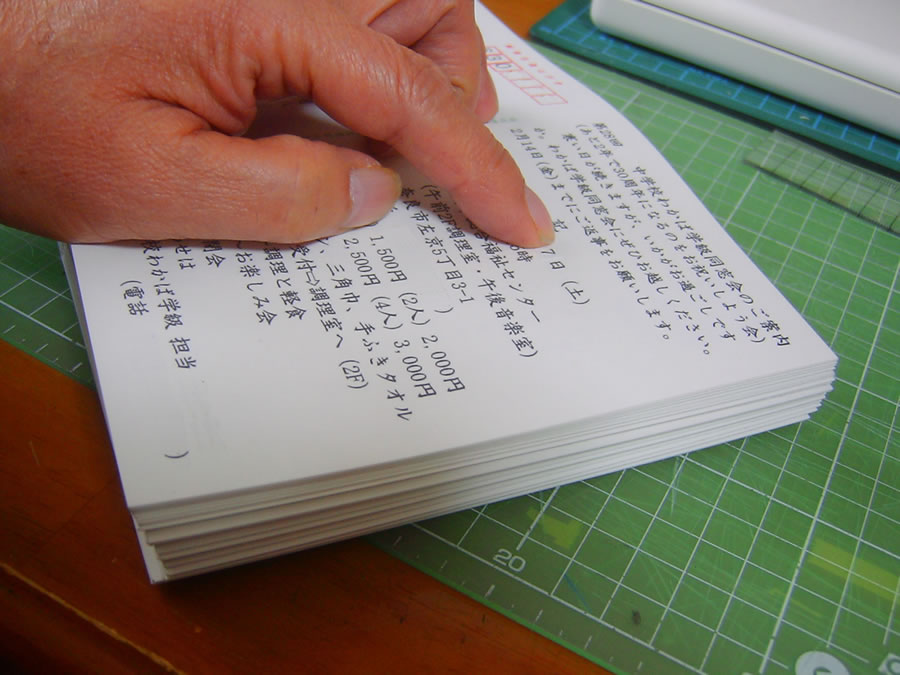 第28回 中学校わかば学級同窓会のご案内
(あと2年で30周年になるのをお祝いしよう会)
寒い日が続きますが、いかがお過ごしです
か。わかば学級同窓会にぜひお越しください。
2月14日(金)までにご返事をお願いします。
記
7日(土)
時
福祉センター
(午前2F調理室・午後音楽室)
奈良市左京5丁目3-1
)
1,500円(2人)2,000円
2,500円(4人)3,000円
、三角巾、手ふきタオル
受付⇒調理室へ(2F)
調理と軽食
お楽しみ会
閉会
せは
校わかば学級 担当
(電話 )
20